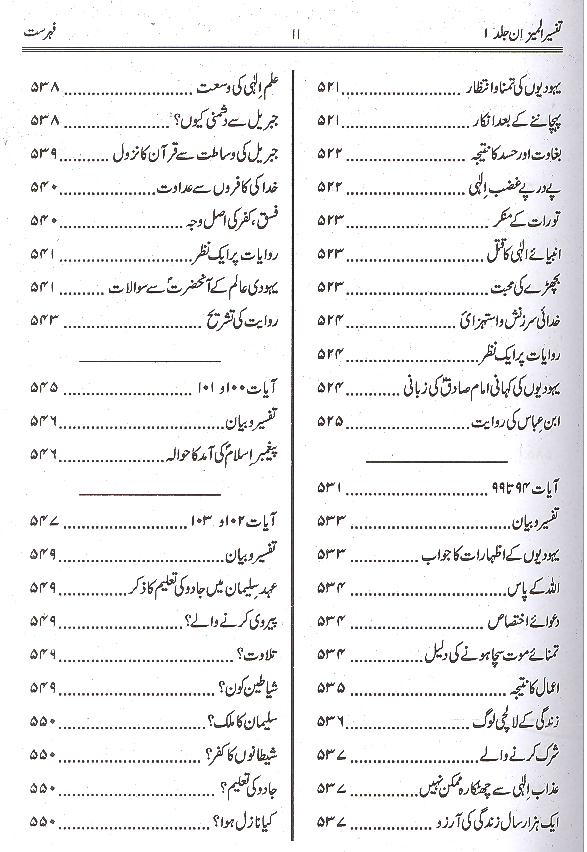 تفسیر المیزان جلد ۱
۱۱
فہرست
یہودیوں کی تمنا و انتظار ........ ۵۲۱
پہچاننے کے بعد انکار ........ ۵۲۱
بغاوت اور حسد کا نتیجہ ........ ۵۲۲
پے در پے غضبِ الٰہی ........ ۵۲۲
تورات کے منکر ........ ۵۲۳
انبیائے الٰہی کا قتل ........ ۵۲۳
بچھڑے کی محبت ........ ۵۲۳
خدائی سرزنش و استہزائ ........ ۵۲۴
روایات پر ایک نظر ........ ۵۲۴
یہودیوں کی کہانی امام صادقؑ کی زبانی ........ ۵۲۴
ابن عباس کی روایت ........ ۵۲۵
آیات ۹۴ تا ۹۹ ........ ۵۳۱
تفسیر و بیان ........ ۵۳۳
یہودیوں کے اظہارات کا جواب ........ ۵۳۳
اللہ کے پاس ........ ۵۳۴
دعوائے اختصاص ........ ۵۳۴
تمنائے موت سچا ہونے کی دلیل ........ ۵۳۴
اعمال کا نتیجہ ........ ۵۳۵
زندگی کے لالچی لوگ ........ ۵۳۶
شرک کرنے والے ........ ۵۳۷
عذابِ الٰہی سے چھٹکارہ ممکن نہیں ........ ۵۳۷
ایک ہزار سال زندگی کی آرزو ........ ۵۳۷
علمِ الٰہی کی وسعت ........ ۵۳۸
جبریل سے دشمنی کیوں؟ ........ ۵۳۸
جبریل کی وساطت سے قرآن کا نزول ........ ۵۳۹
خدا کی کافروں سے عداوت ........ ۵۴۰
فسق، کفر کی اصل وجہ ........ ۵۴۰
روایات پر ایک نظر ........ ۵۴۱
یہودی عالم کے آنحضرتؐ سے سوالات ........ ۵۴۱
روایت کی تشریح ........ ۵۴۳
آیات ۱۰۰ و ۱۰۱ ........ ۵۴۵
تفسیر و بیان ........ ۵۴۶
پیغمبرِ اسلامؐ کی آمد کا حوالہ ........ ۵۴۶
آیات ۱۰۲ و ۱۰۳ ........ ۵۴۷
تفسیر و بیان ........ ۵۴۹
عہدِ سلیمان میں جادو کی تعلیم کا ذکر ........ ۵۴۹
پیروی کرنے والے؟ ........ ۵۴۹
تلاوت؟ ........ ۵۴۹
شیاطین کون؟ ........ ۵۴۹
سلیمان کا ملک؟ ........ ۵۵۰
شیطانوں کا کفر؟ ........ ۵۵۰
جادو کی تعلیم؟ ........ ۵۵۰
کیا نازل ہوا؟ ........ ۵۵۰